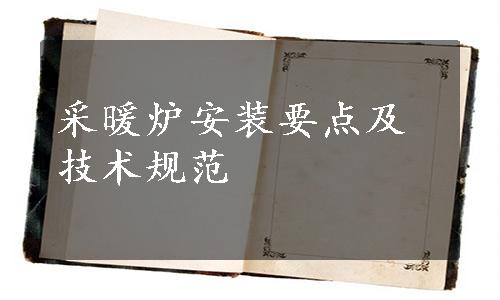 采暖炉安装要点及
技术规范